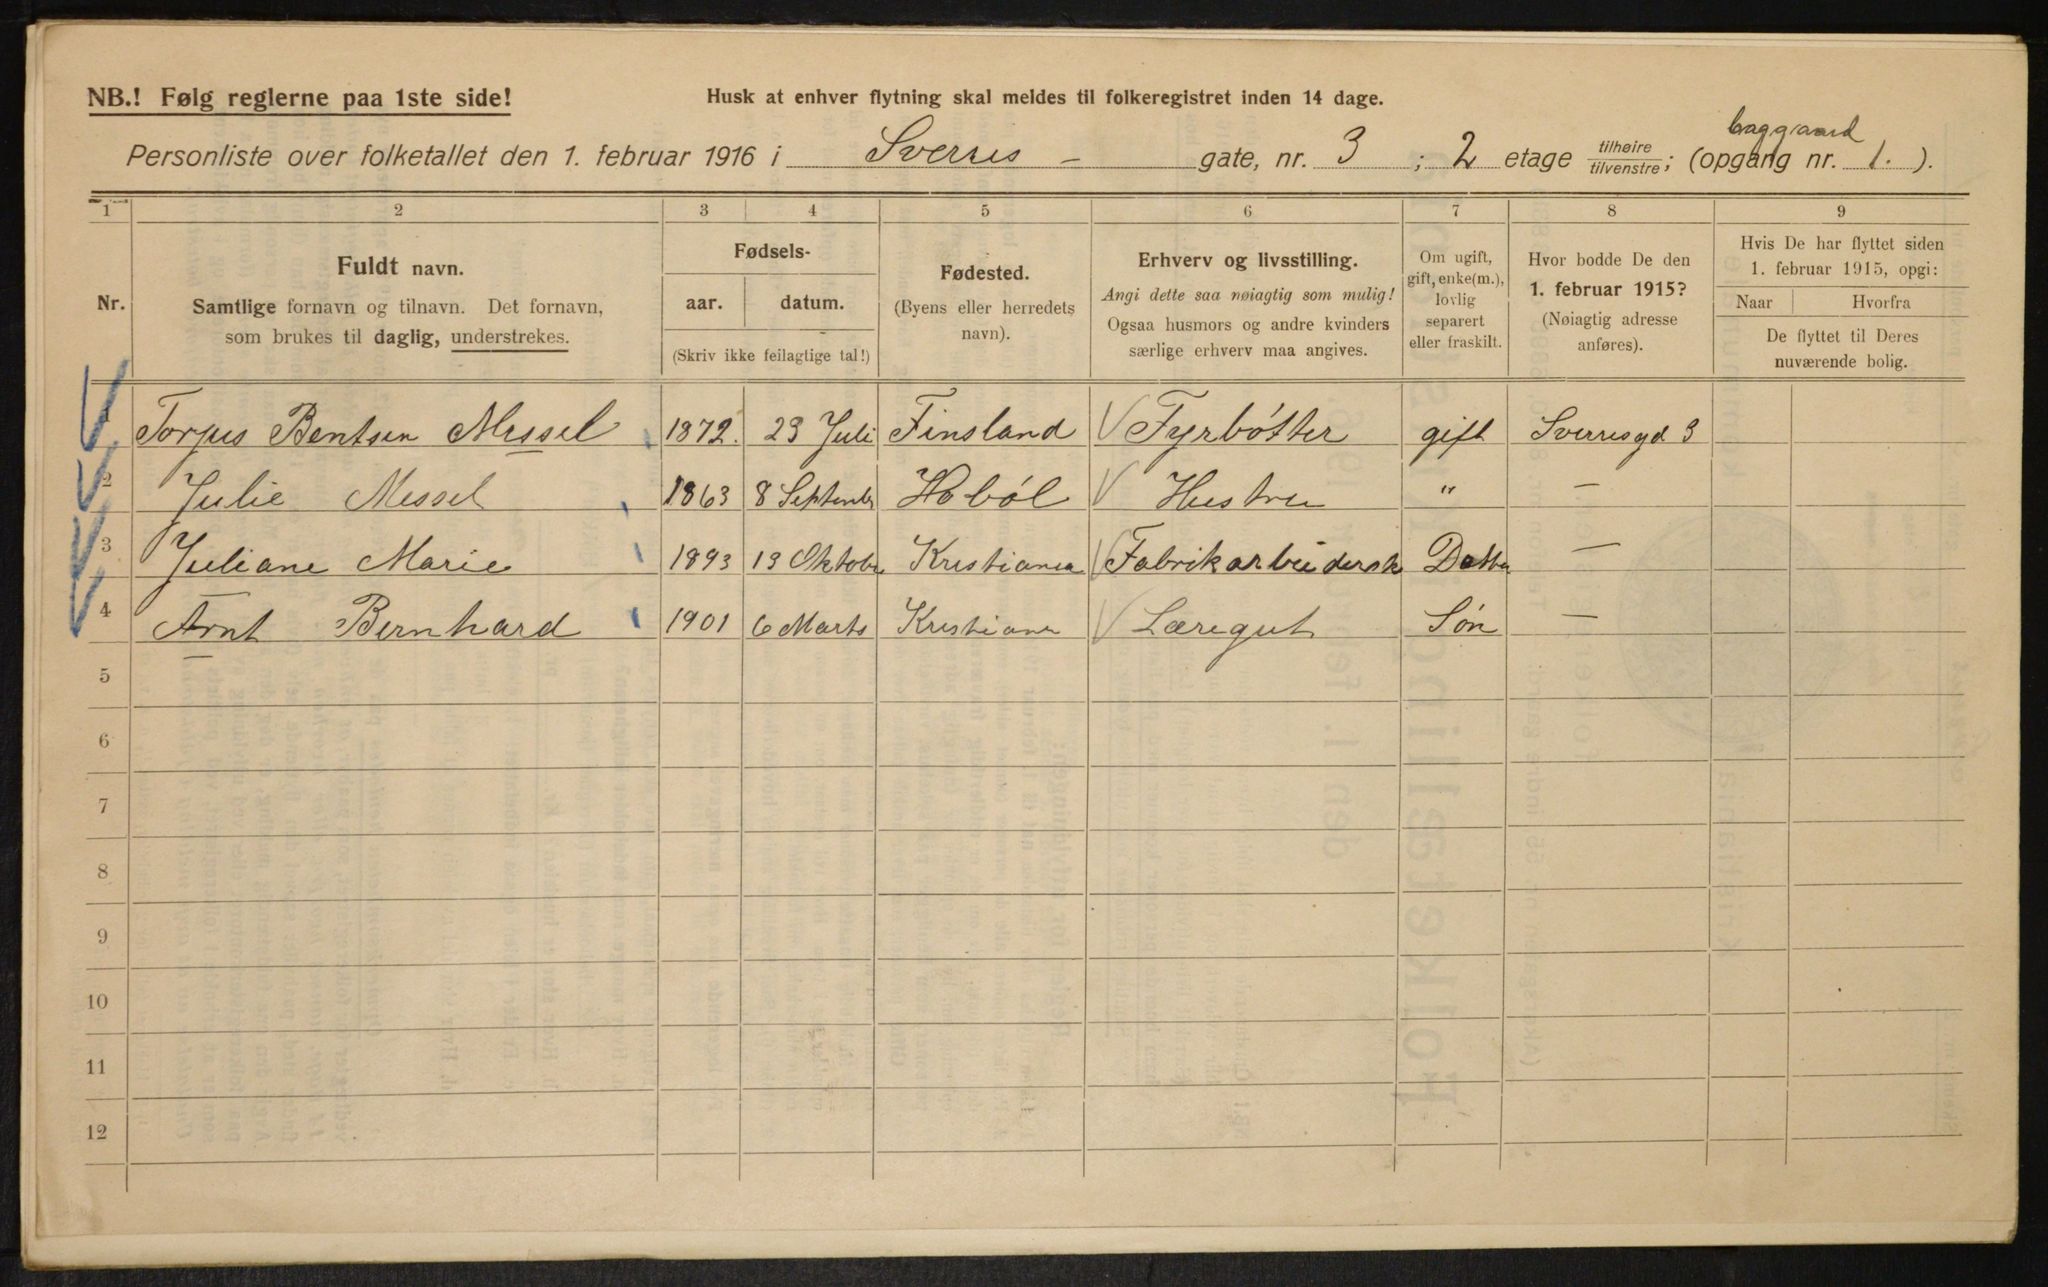 NB.! Følg reglerne paa 1ste side!
Husk at enhver flytning skal meldes til folkeregistret inden 14 dage.
baggaard
Personliste over folketallet den 1. februar 1916 i Sverres - gate, nr. 3 ; 2 etage tilhøire/tilvenstre; (opgang nr. 1.).
1 2 3 4 5 6 7 8 9
Nr.
Fuldt navn.
Samtlige fornavn og tilnavn. Det fornavn,
som brukes til daglig, understrekes.
Fødsels-
aar. datum.
(Skriv ikke feilagtige tal!)
Fødested.
(Byens eller herredets
navn).
Erhverv og livsstilling.
Angi dette saa nøiagtig som mulig!
Ogsaa husmors og andre kvinders
særlige erhverv maa angives.
Om ugift,
gift, enke(m.),
lovlig
separert
eller fraskilt.
Hvor bodde De den
1. februar 1915?
(Nøiagtig adresse
anføres).
Hvis De har flyttet siden
1. februar 1915, opgi:
Naar Hvorfra
De flyttet til Deres
nuværende bolig.
1 Torjus Bentsen Messel 1872. 23 Juli Finsland Fyrbøtter gift Sverresgd 3
2 Julie Messel 1863 8 September Hobøl Hustru " —
3 Juliane Marie 1893 13 Oktober Kristiania Fabrikarbeidersk Datter —
4 Arnt Bernhard 1901 6 Marts Kristiania Læregut Søn —
5
6
7
8
9
10
11
12